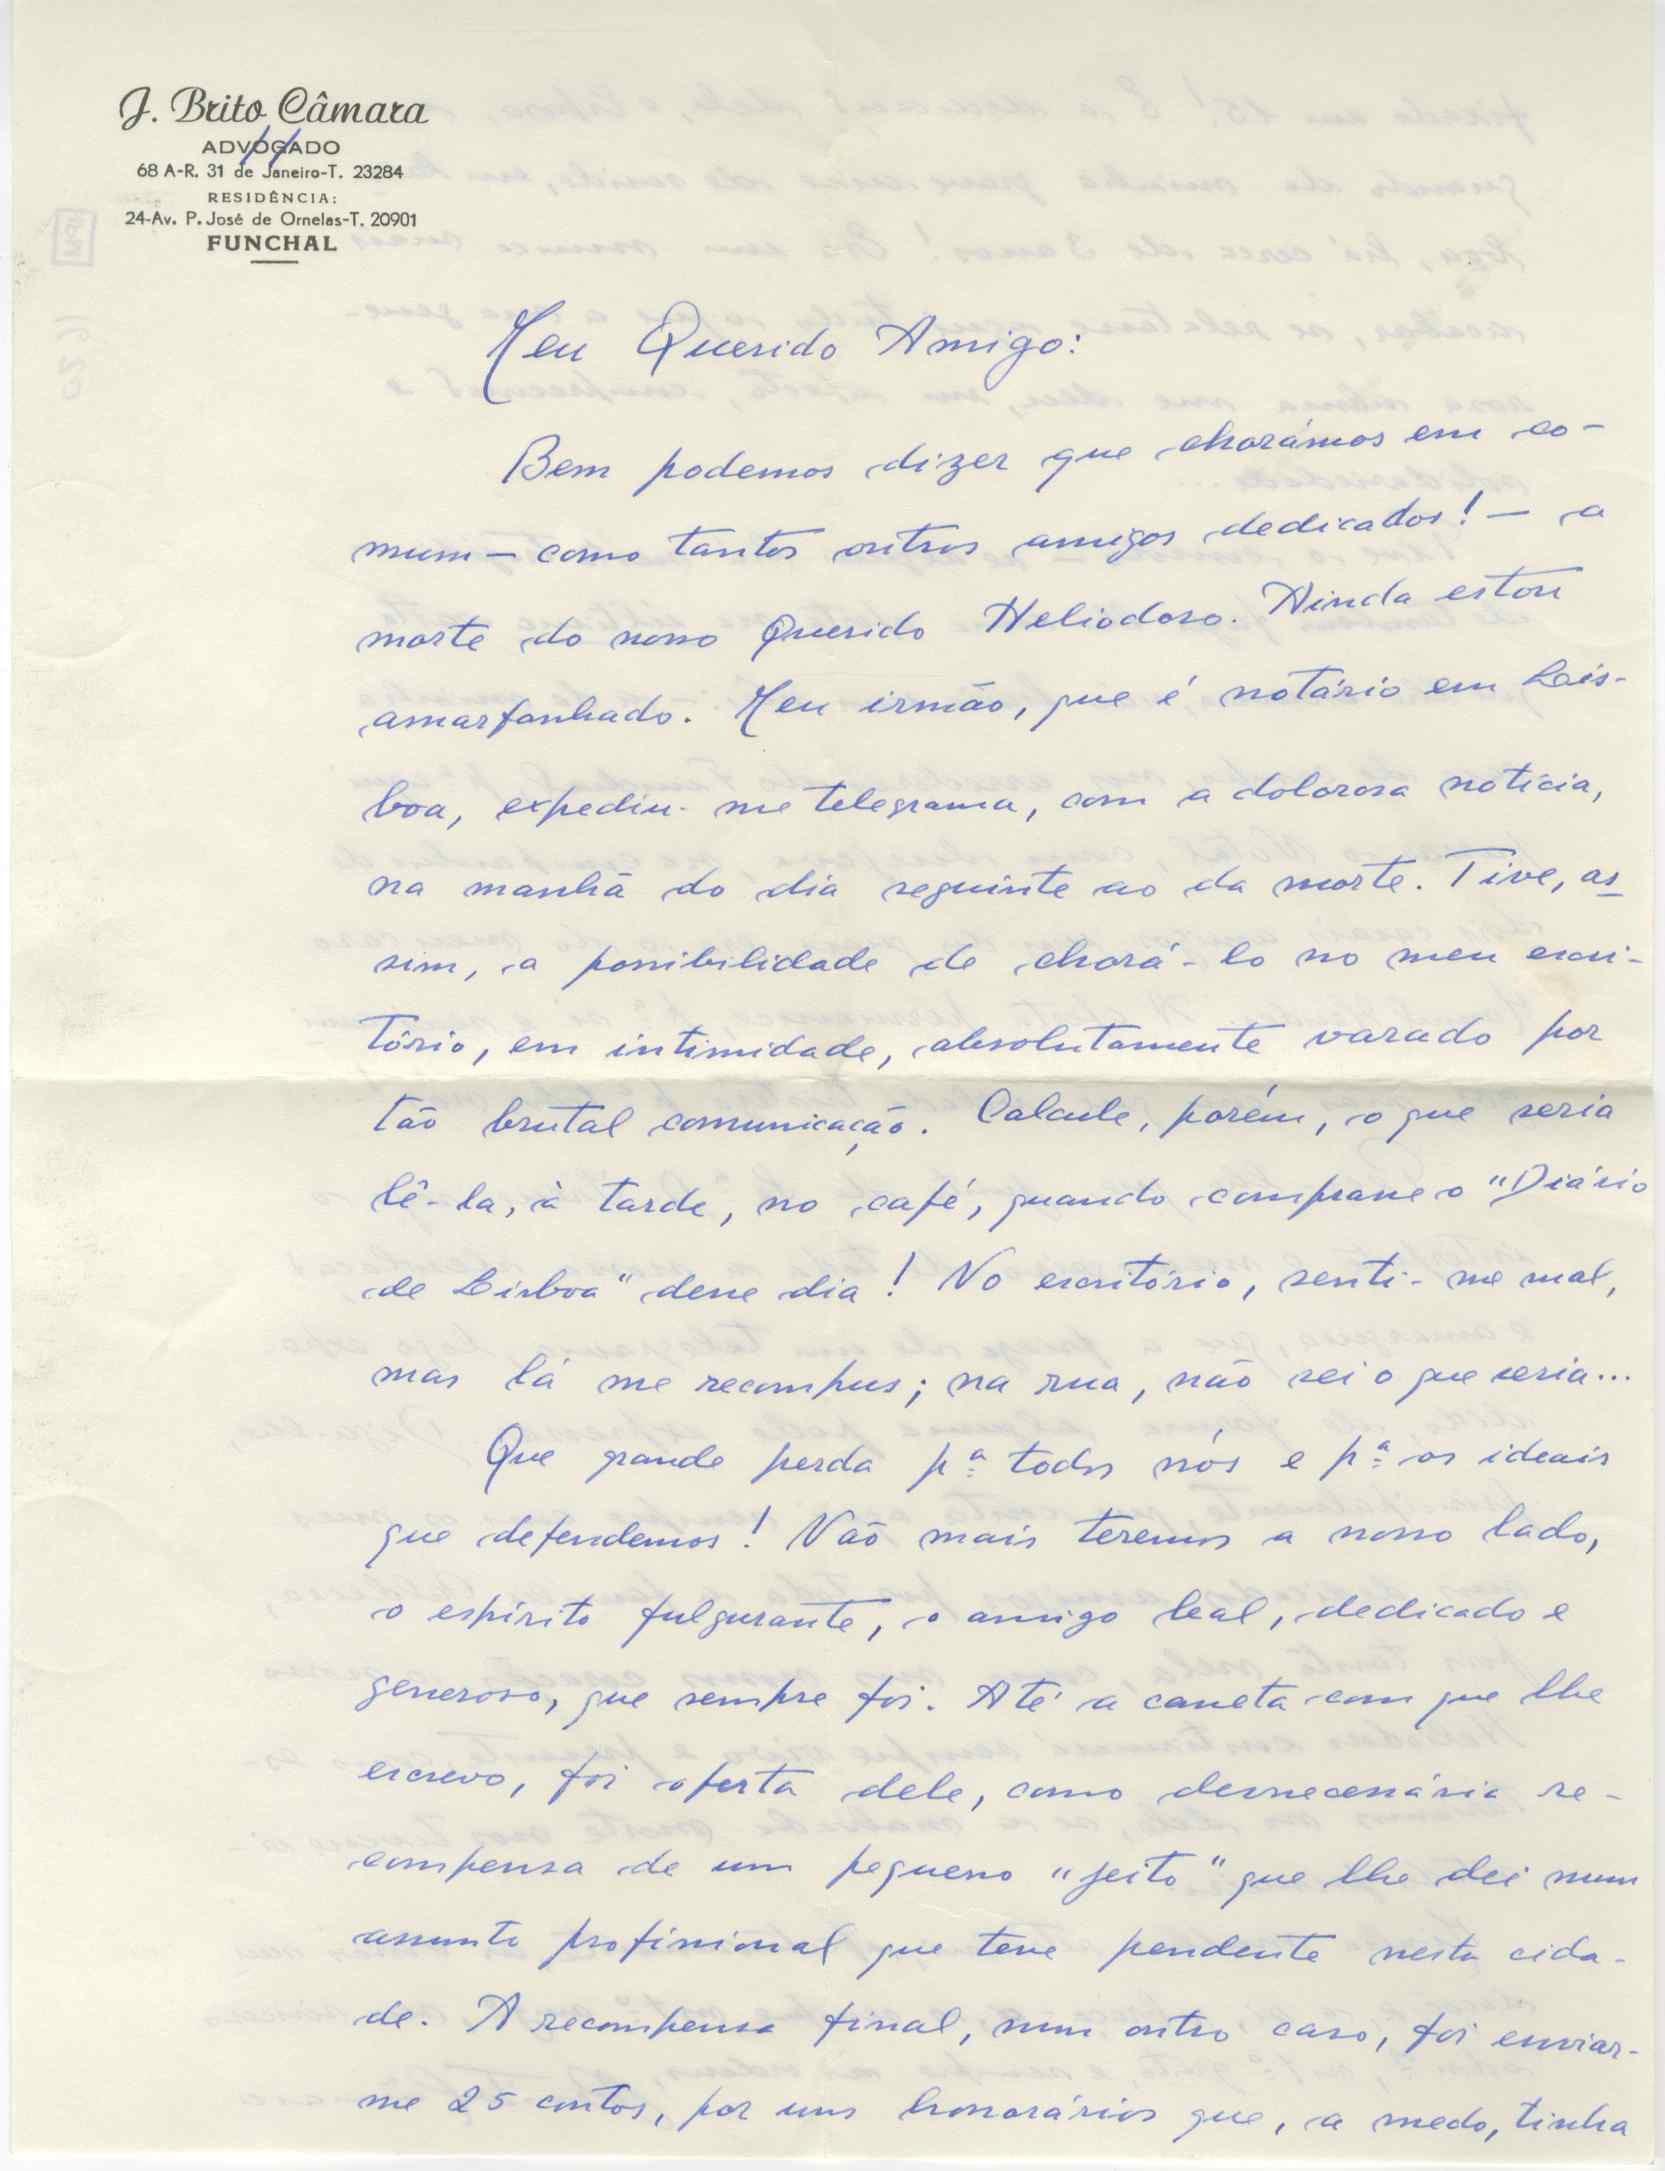 J. Brito Câmara
ADVOGADO
68 A-R. 31 de Janeiro-T. 23284
RESIDÊNCIA:
24-Av. P. José de Ornelas-T. 20901
FUNCHAL
Meu Querido Amigo:
Bem podemos dizer que chorámos em co-
mum — como tantos outros amigos dedicados! — a
morte do nosso Querido Heliodoro. Ainda estou
amarfanhado. Meu irmão, que é notário em Lis-
boa, expediu-me telegrama, com a dolorosa notícia,
na manhã do dia seguinte ao da morte. Tive, as
sim, a possibilidade de chorá-lo no meu escri-
tório, em intimidade, absolutamente varado por
tão brutal comunicação. Calcule, porém, o que seria
lê-la, à tarde, no café, quando comprasse o "Diário
de Lisboa" desse dia! No escritório, senti-me mal,
mas lá me recompus; na rua, não sei o que seria...
Que grande perda pª todos nós e pª os ideais
que defendemos! Não mais teremos a nosso lado,
o espírito fulgurante, o amigo leal, dedicado e
generoso, que sempre foi. Até a caneta com que lhe
escrevo, foi oferta dele, como desnecessária re-
compensa de um pequeno "jeito" que lhe dei num
assunto profissional que teve pendente nesta cida-
de. A recompensa final, num outro caso, foi enviar-
me 25 contos, por uns honorários que, a medo, tinha